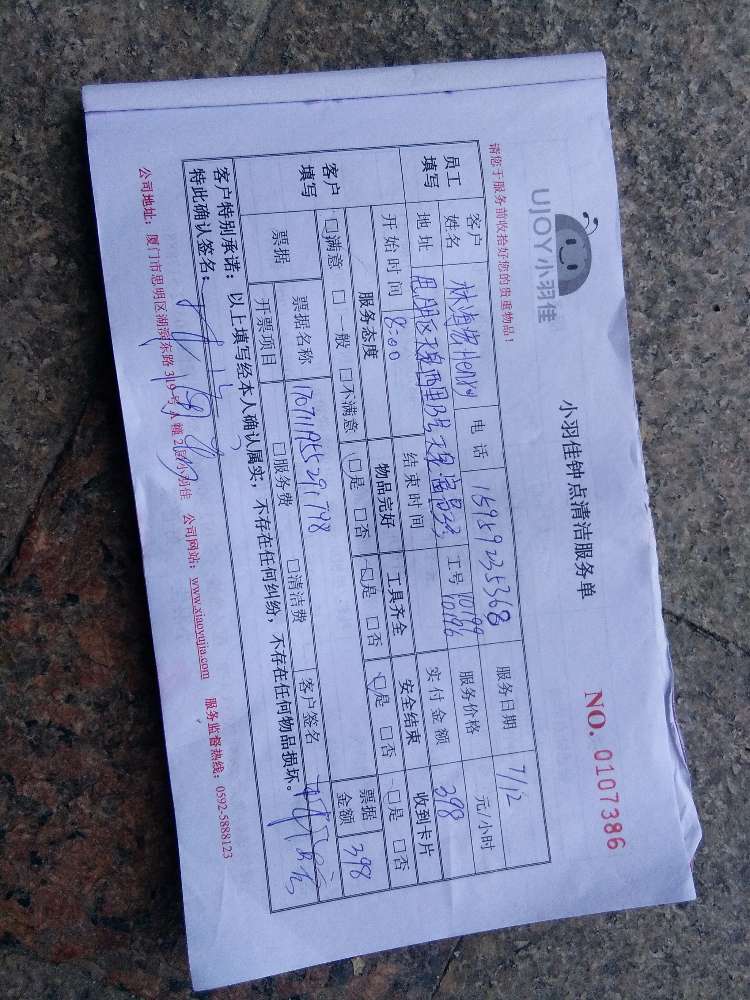 UJOY小羽佳
小羽佳钟点清洁服务单
NO. 0107386
请您于服务前收拾好您的贵重物品！
员工填写 客户姓名 Henry 电话 15959235368 服务日期 7/12
地址 思明区 工号 Y0799 Y0796 服务价格 元/小时
开始时间 8:00 结束时间 实付金额 398
客户填写 服务态度 物品完好 工具齐全 安全结束 收到卡片
□满意 □一般 □不满意 □是 □否 □是 □否 □是 □否 □是 □否
票据 票据名称 客户签名 票据金额 398
开票项目 □服务费 □清洁费
客户特别承诺：以上填写经本人确认属实，不存在任何纠纷，不存在任何物品损坏。
特此确认签名：
公司地址：厦门市思明区湖滨东路 319号A幢2层小羽佳 公司网站：www.xiaoyujia.com 服务监督热线：0592-5888123